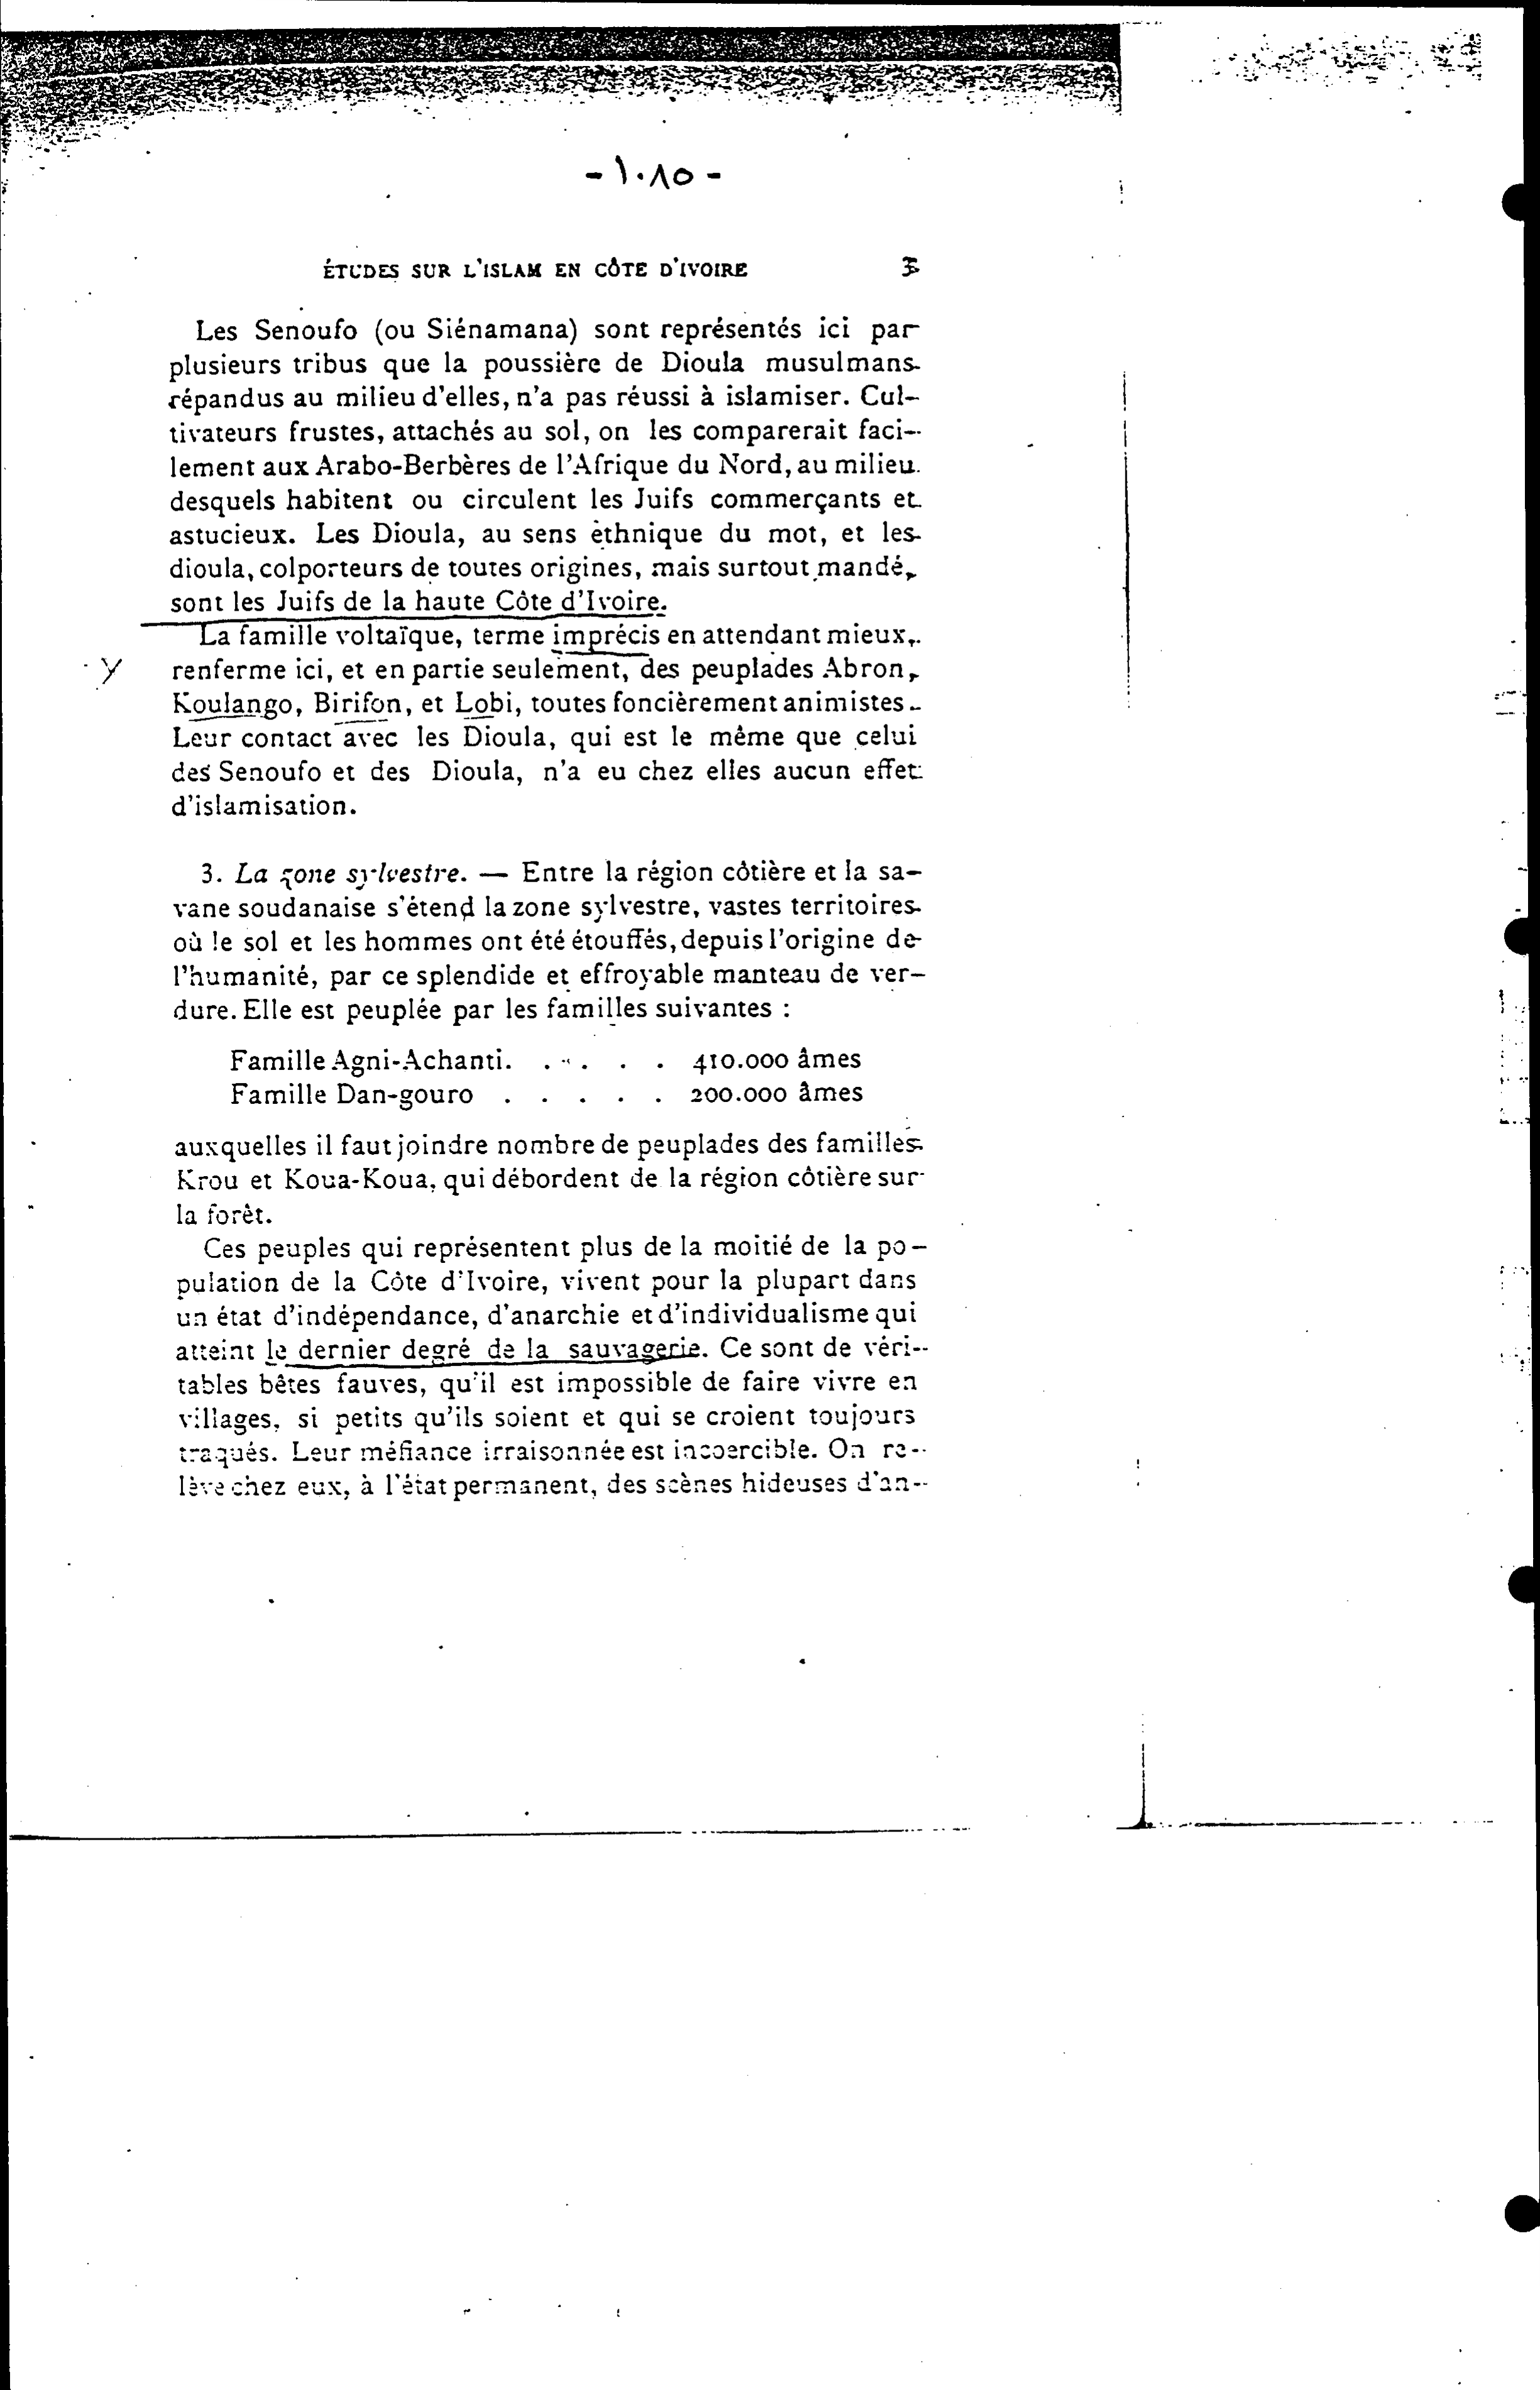 - ١٠٨٥ -
ÉTUDES SUR L'ISLAM EN CÔTE D'IVOIRE
Les Senoufo (ou Siénamana) sont représentés ici par
plusieurs tribus que la poussière de Dioula musulmans
répandus au milieu d'elles, n'a pas réussi à islamiser. Cul-
tivateurs frustes, attachés au sol, on les comparerait faci-
lement aux Arabo-Berbères de l'Afrique du Nord, au milieu
desquels habitent ou circulent les Juifs commerçants et
astucieux. Les Dioula, au sens ethnique du mot, et les
dioula, colporteurs de toutes origines, mais surtout mandé,
sont les Juifs de la haute Côte d'Ivoire.
La famille voltaïque, terme imprécis en attendant mieux,
renferme ici, et en partie seulement, des peuplades Abron,
Koulango, Birifon, et Lobi, toutes foncièrement animistes.
Leur contact avec les Dioula, qui est le même que celui
des Senoufo et des Dioula, n'a eu chez elles aucun effet
d'islamisation.
3. La zone sylvestre. — Entre la région côtière et la sa-
vane soudanaise s'étend la zone sylvestre, vastes territoires
où le sol et les hommes ont été étouffés, depuis l'origine de
l'humanité, par ce splendide et effroyable manteau de ver-
dure. Elle est peuplée par les familles suivantes :
Famille Agni-Achanti. . . . . . 410.000 âmes
Famille Dan-gouro . . . . . 200.000 âmes
auxquelles il faut joindre nombre de peuplades des familles
Krou et Koua-Koua, qui débordent de la région côtière sur
la forêt.
Ces peuples qui représentent plus de la moitié de la po-
pulation de la Côte d'Ivoire, vivent pour la plupart dans
un état d'indépendance, d'anarchie et d'individualisme qui
atteint le dernier degré de la sauvagerie. Ce sont de véri-
tables bêtes fauves, qu'il est impossible de faire vivre en
villages, si petits qu'ils soient et qui se croient toujours
traqués. Leur méfiance irraisonnée est incoercible. On re-
lève chez eux, à l'état permanent, des scènes hideuses d'an-